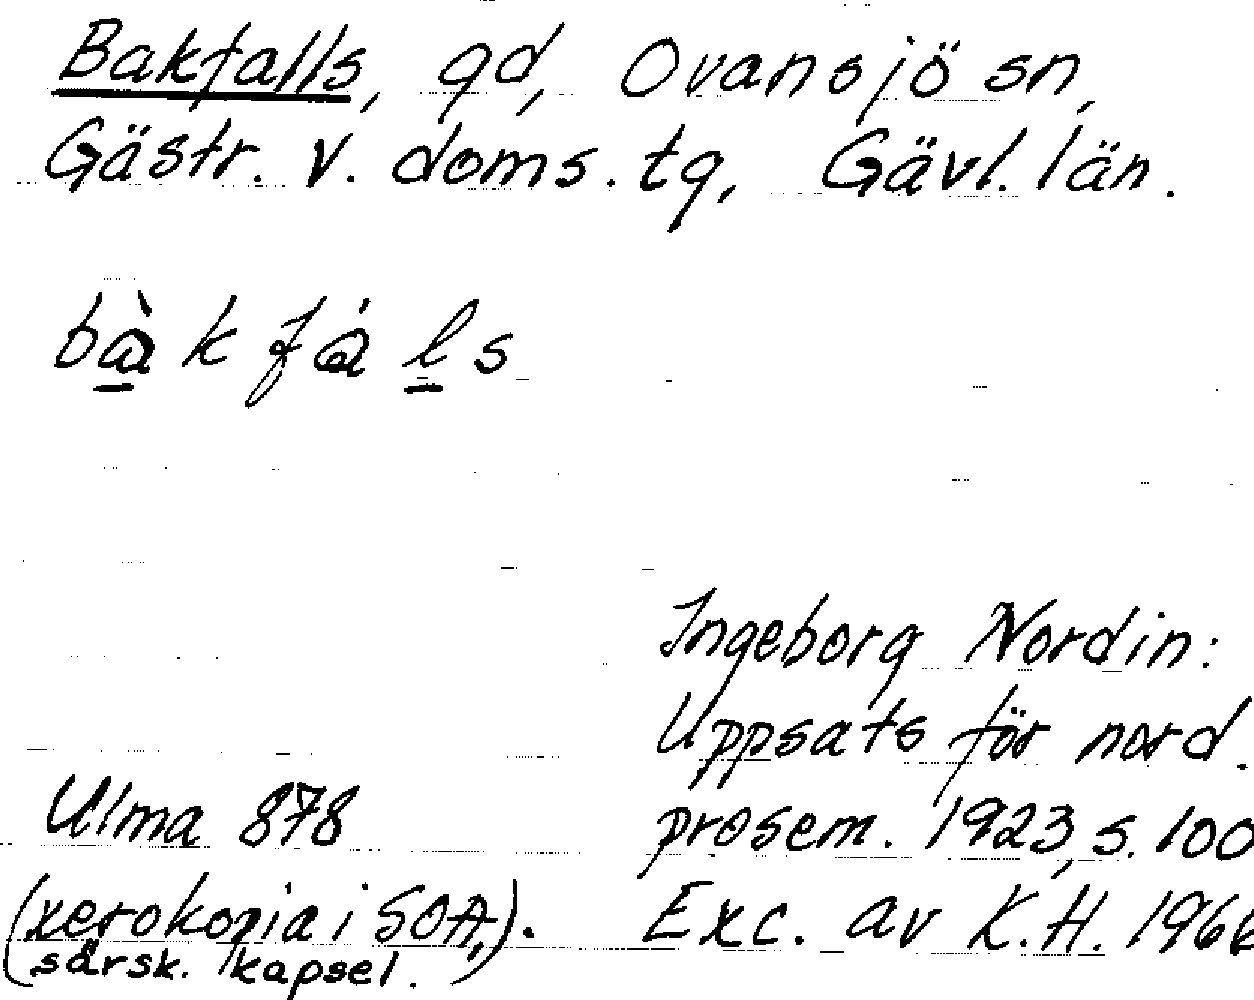 Bakfalls, gd, Ovansjö sn,
Gästr. v. doms. tg, Gävl. län.
bàkfáls
Ingeborg Nordin:
Uppsats för nord.
prosem. 1923, s. 100
Exc. av K.H. 1966
Ulma 878
(xerokopia i SOA,).
särsk. kapsel.